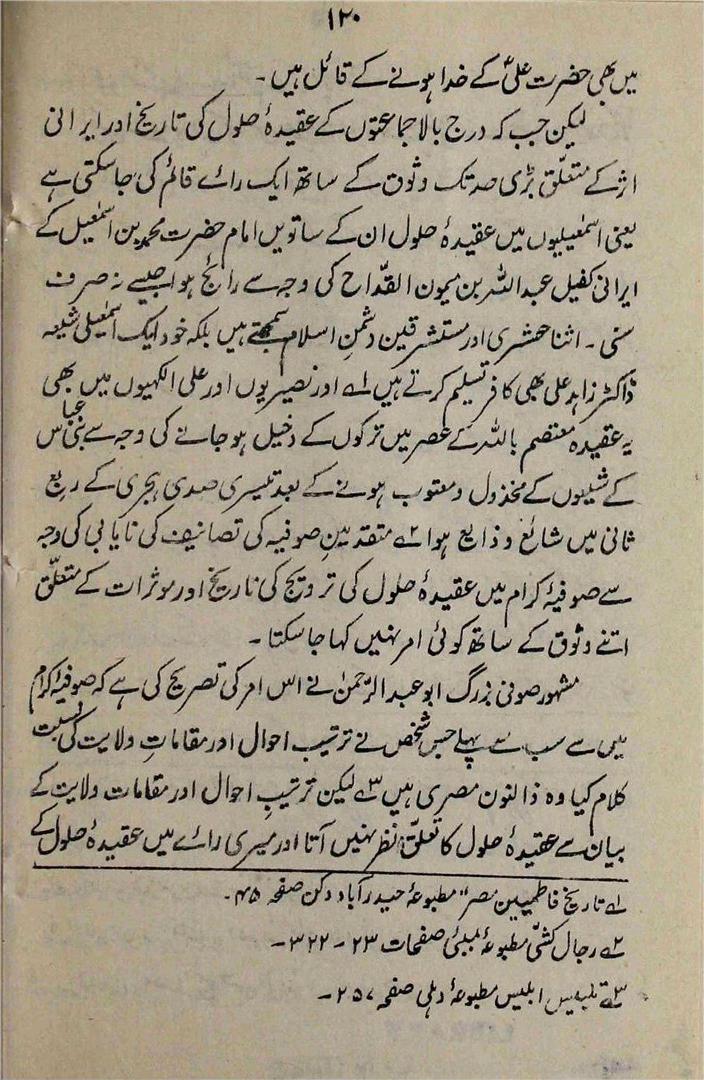 ۱۲۰
میں بھی حضرت علیؓ کے خدا ہونے کے قائل ہیں۔
لیکن جب کہ درج بالا جماعتوں کے عقیدۂ حلول کی تاریخ اور ایرانی
اثر کے متعلّق بڑی حد تک وثوق کے ساتھ ایک رائے قائم کی جاسکتی ہے
یعنی اسمٰعیلیوں میں عقیدۂ حلول ان کے ساتویں امام حضرت محمد بن اسمٰعیل کے
ایرانی کفیل عبداللہ بن میمون القدّاح کی وجہ سے رائج ہوا جسے نہ صرف
سنی۔ اثنا عشری اور مستشرقین دشمنِ اسلام سمجھتے ہیں بلکہ خود ایک اسمٰعیلی شیعہ
ڈاکٹر زاہد علی بھی کافر تسلیم کرتے ہیں ۱ے اور نصیریوں اور علی الٰلہیوں میں بھی
یہ عقیدہ معتصم باللہ کے عصر میں ترکوں کے دخیل ہو جانے کی وجہ سے بنی عباس
کے شیعوں کے مخذول و معتوب ہونے کے بعد تیسری صدی ہجری کے ربع
ثانی میں شائع و ذایع ہوا ۲ے متقدمینِ صوفیہ کی تصانیف کی نایابی کی وجہ
سے صوفیۂ کرام میں عقیدۂ حلول کی ترویج کی تاریخ اور موثرات کے متعلّق
اتنے وثوق کے ساتھ کوئی امر نہیں کہا جا سکتا۔
مشہور صوفی بزرگ ابو عبد الرّحمٰن نے اس امر کی تصریح کی ہے کہ صوفیۂ کرام
میں سے سب سے پہلے جس شخص نے ترتیب احوال اور مقاماتِ ولایت کی نسبت
کلام کیا وہ ذالنون مصری ہیں ۳ے لیکن ترتیبِ احوال اور مقامات ولایت کے
بیان سے عقیدۂ حلول کا تعلّق نظر نہیں آتا اور میری رائے میں عقیدۂ حلول کے
۱ے تاریخ فاطمیین مصر" مطبوعۂ حیدرآباد دکن صفحہ ۴۵۔
۲ے رجال کشّی مطبوعۂ بمبئی صفحات ۲۳ - ۳۲۲۔
۳ے تلبیس ابلیس مطبوعۂ دہلی صفحہ ۲۵۷۔